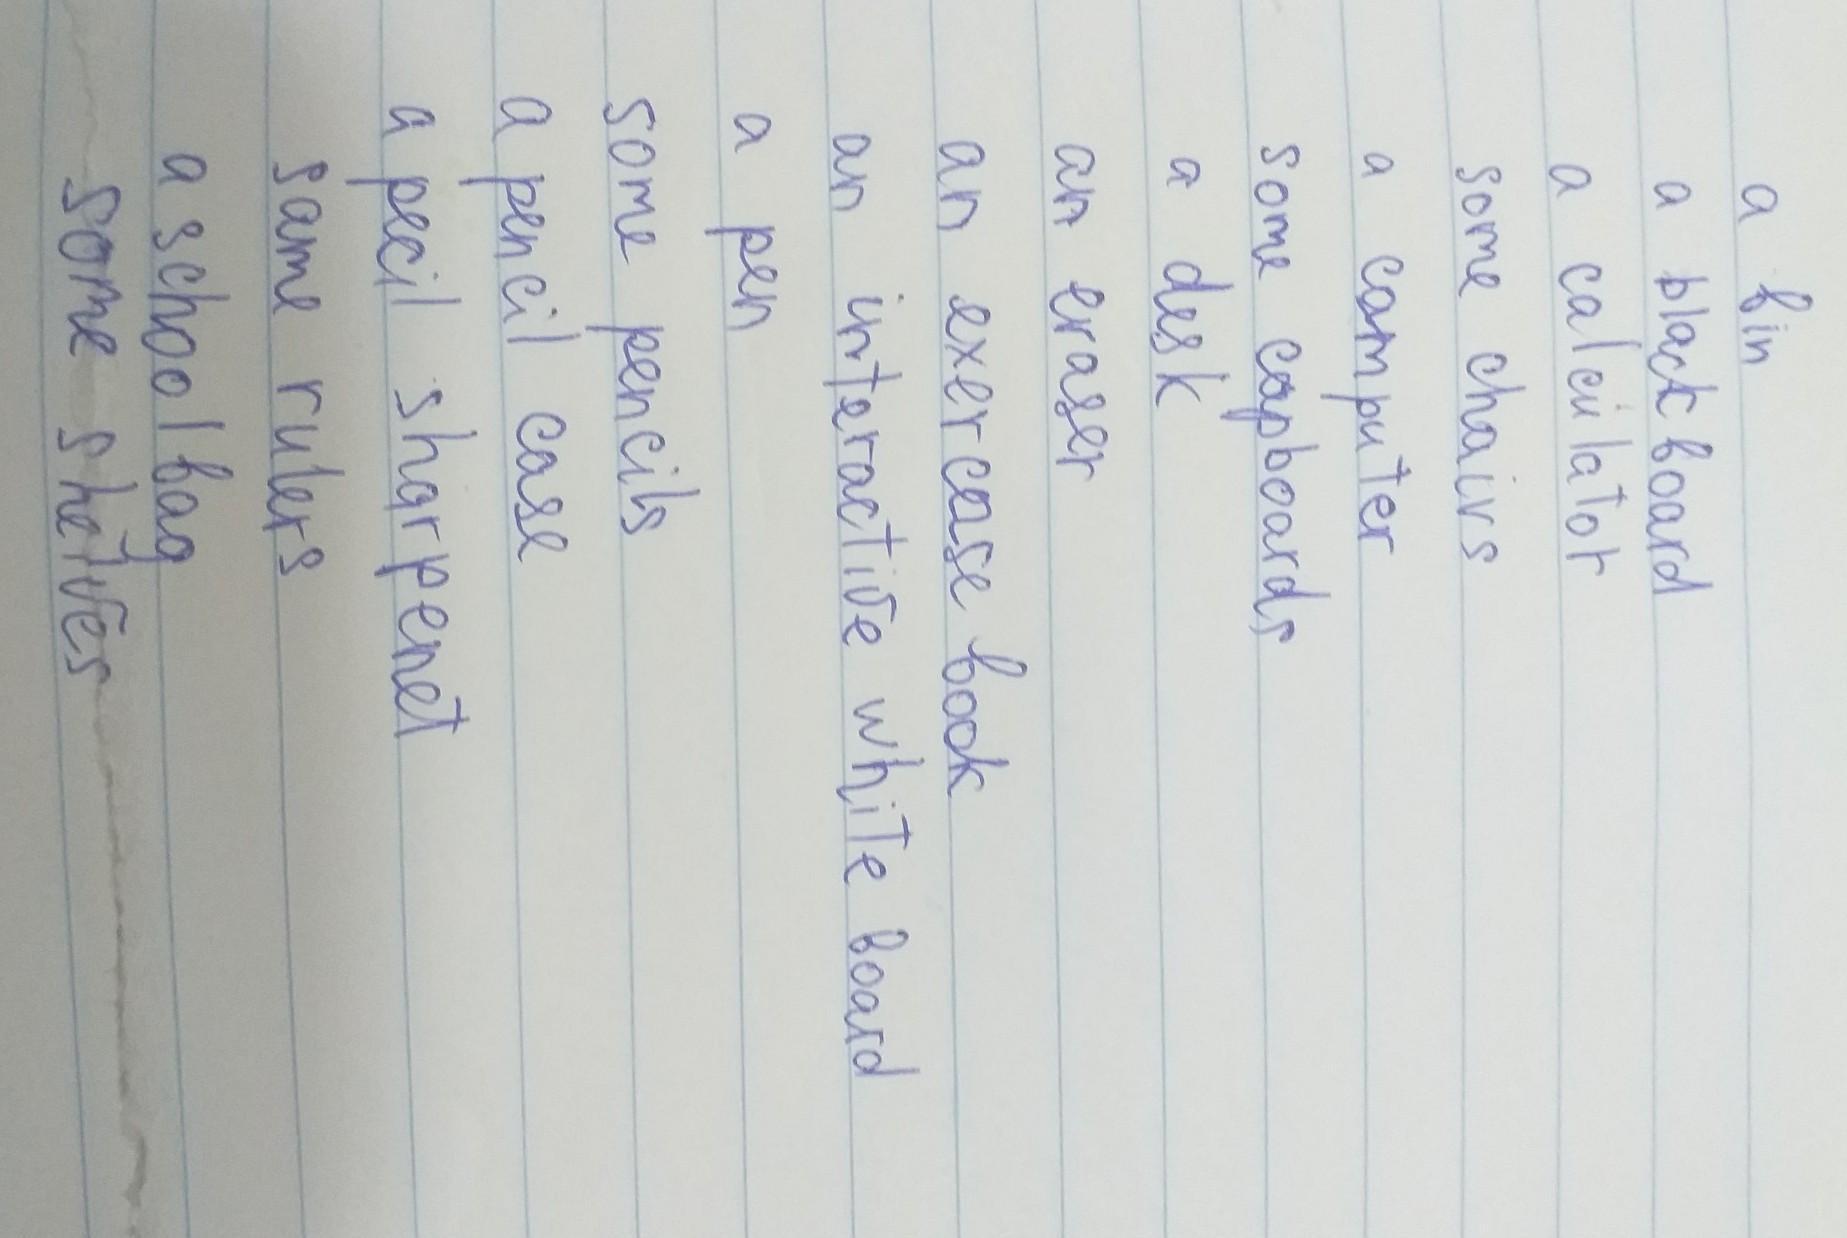 a bin
a blackboard
a calculator
some chairs
a computer
some capboards
a desk
an eraser
an exercase book
an interactive white board
a pen
some pencils
a pencil case
a pecil sharpenet
same rulers
a school bag
some shelves